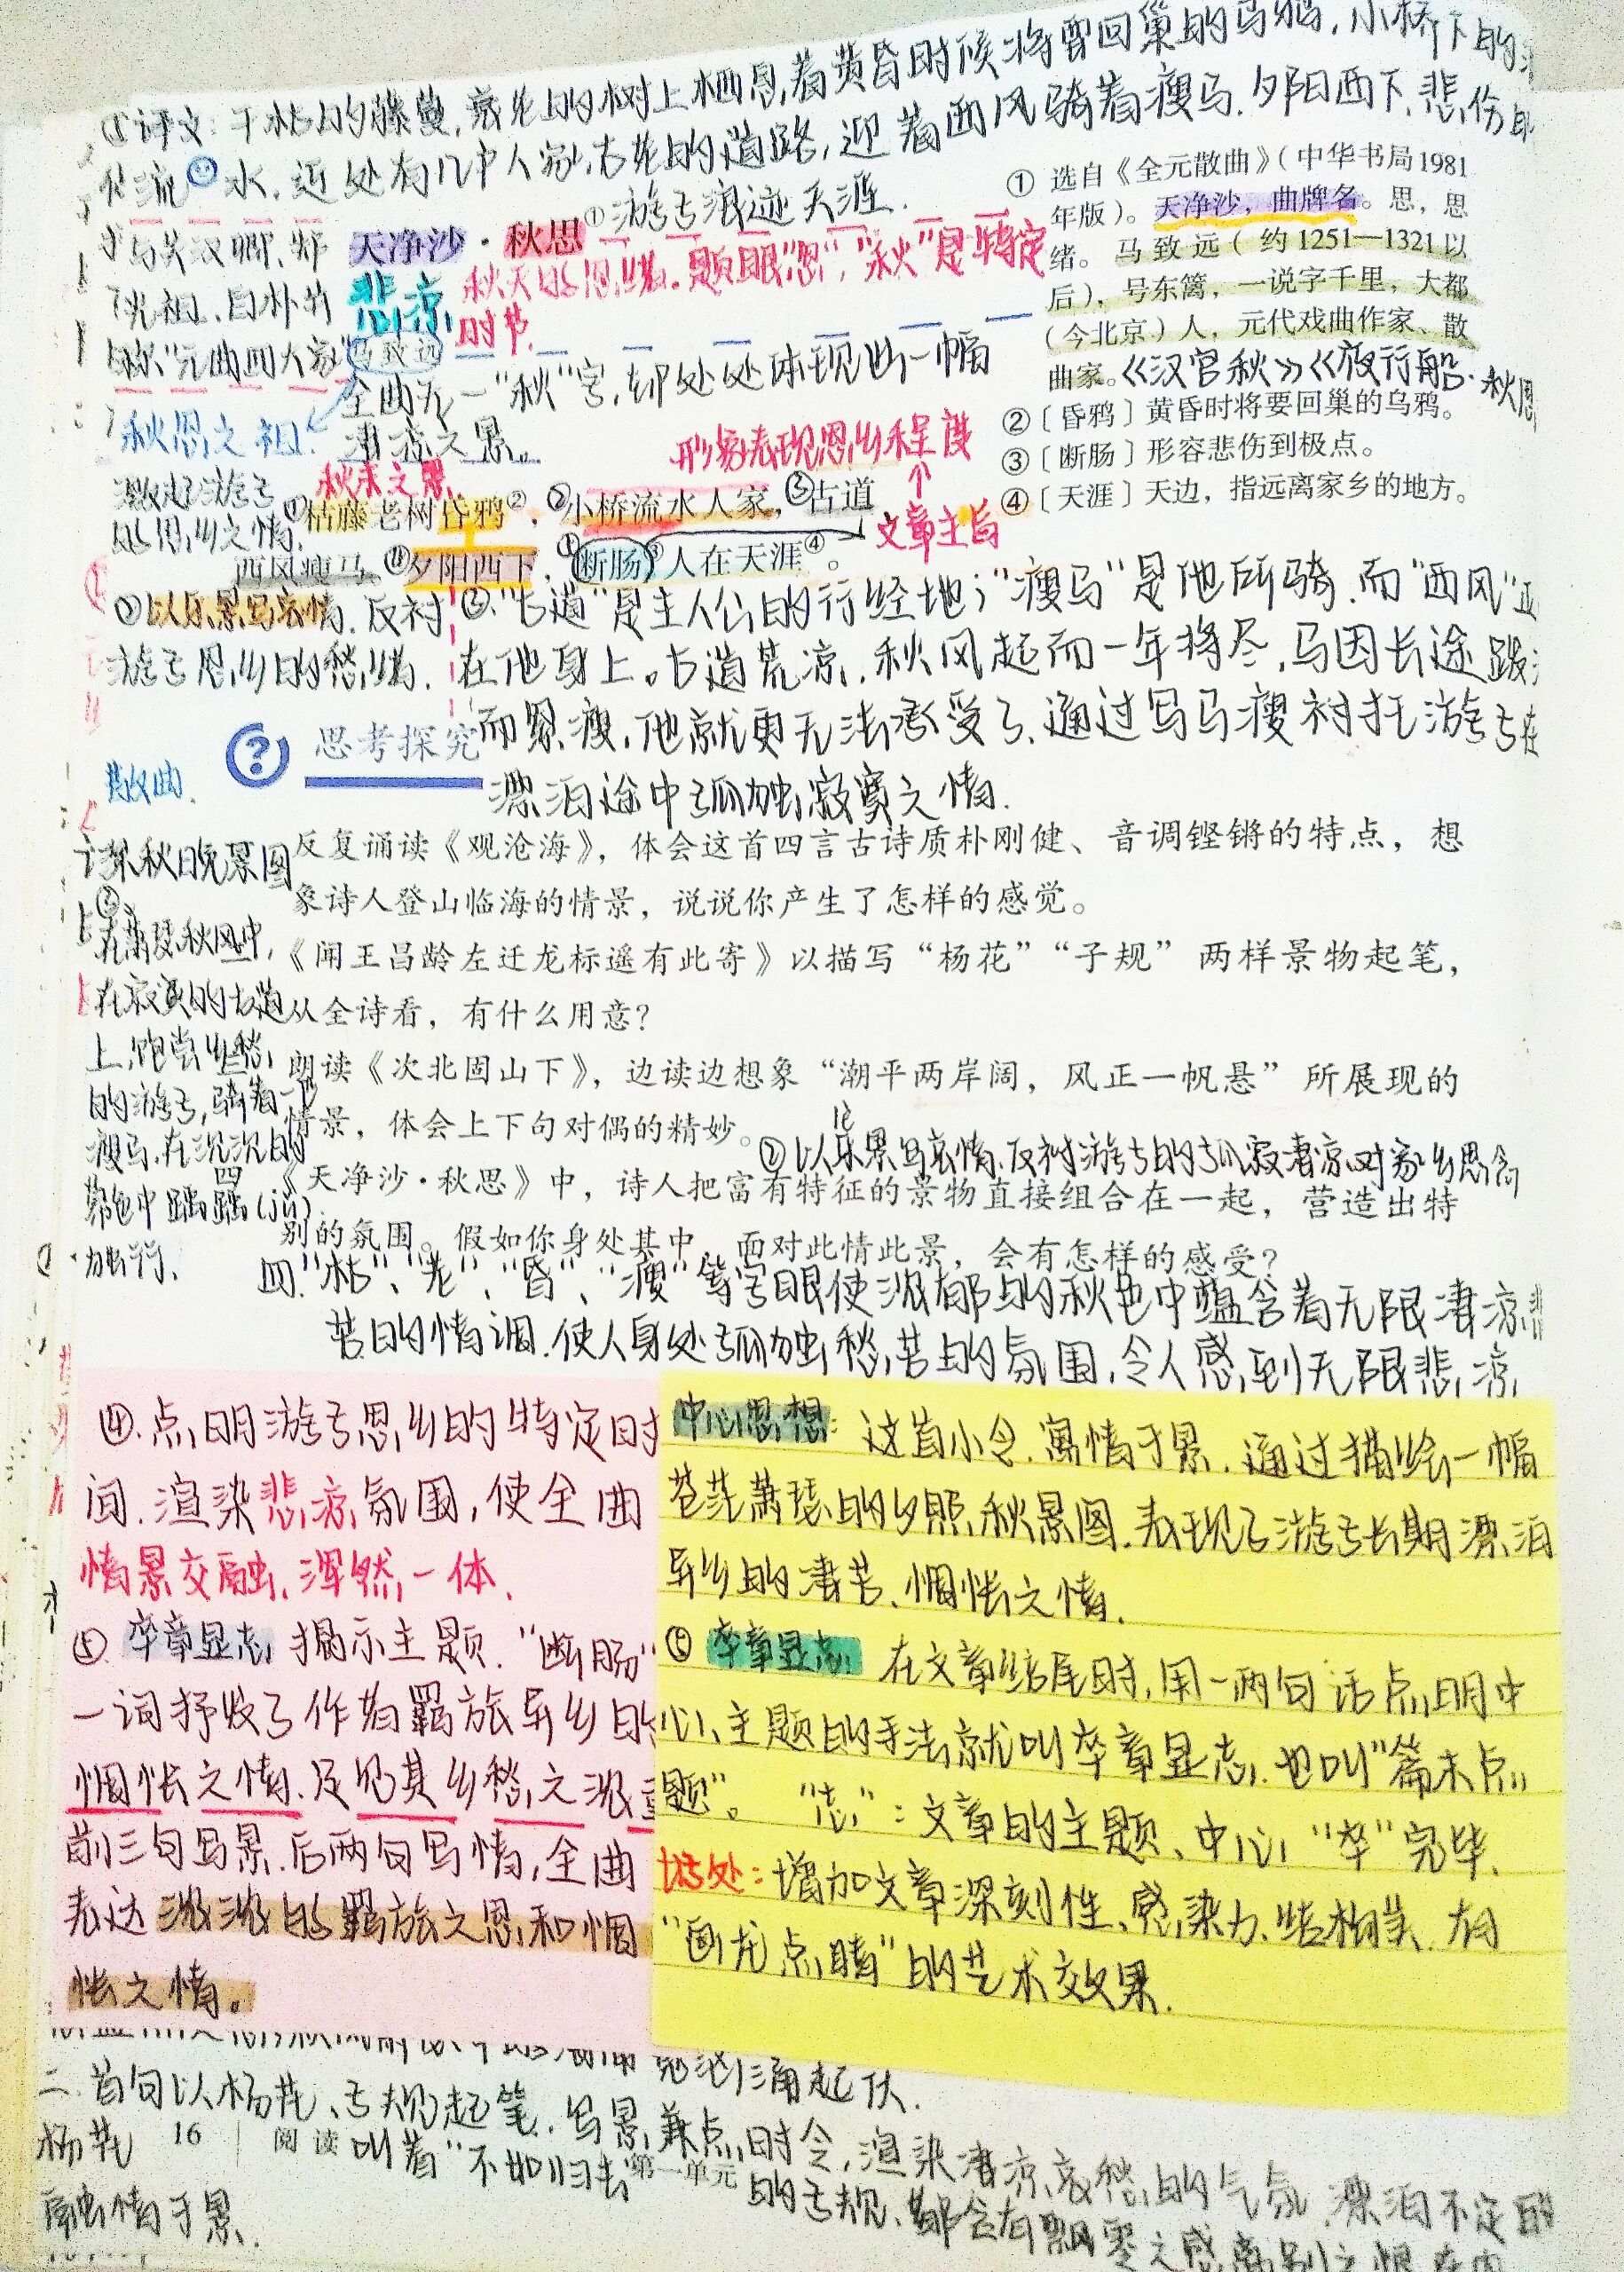 译文：干枯的藤蔓，衰老的树上栖息着黄昏时候将要回巢的乌鸦，小桥下的
流水，近处有几户人家，古老的道路，迎着西风骑着瘦马，夕阳西下，悲伤
游子浪迹天涯.
与关汉卿、郑
光祖、白朴并
称"元曲四大家"
秋思之祖.
天净沙·秋思①
悲凉
秋天的思绪.题眼"思","秋"是特定
时节.
马致远
全曲无一"秋"字,却处处体现出一幅
凄凉之景。
① 选自《全元散曲》（中华书局1981
年版）。天净沙，曲牌名。思，思
绪。马致远（约1251—1321以
后），号东篱，一说字千里，大都
（今北京）人，元代戏曲作家、散
曲家。《汉宫秋》《夜行船·秋思
②〔昏鸦〕黄昏时将要回巢的乌鸦。
③〔断肠〕形容悲伤到极点。
④〔天涯〕天边，指远离家乡的地方。
形象表现思乡程度
文章主旨
秋末之景
激起游子
的思乡之情.
①枯藤老树昏鸦②，②小桥流水人家，③古道
西风瘦马。④夕阳西下，断肠③人在天涯④。
②以乐景写哀情.反衬
游子思乡的愁绪.
③."古道"是主人公的行经地;"瘦马"是他所骑.而"西风"正
在他身上。古道荒凉,秋风起而一年将尽,马因长途跋
而累瘦,他就更无法承受了.通过写马瘦衬托游子在
漂泊途中孤独寂寞之情.
思考探究
散曲.
深秋晚景图
在萧瑟秋风中,
在寂寞的古道
上,饱尝乡愁
的游子,骑着一匹
瘦马,在沉沉的
暮色中踽踽(jǔ)
独行.
反复诵读《观沧海》，体会这首四言古诗质朴刚健、音调铿锵的特点，想
象诗人登山临海的情景，说说你产生了怎样的感觉。
《闻王昌龄左迁龙标遥有此寄》以描写“杨花”“子规”两样景物起笔，
从全诗看，有什么用意？
朗读《次北固山下》，边读边想象“潮平两岸阔，风正一帆悬”所展现的
情景，体会上下句对偶的精妙。
②以乐景写哀情.反衬游子的孤寂凄凉对家乡思念
四 《天净沙·秋思》中，诗人把富有特征的景物直接组合在一起，营造出特
别的氛围。假如你身处其中，面对此情此景，会有怎样的感受？
四."枯"、"老"、"昏"、"瘦"等字眼使浓郁的秋色中蕴含着无限凄凉悲
苦的情调.使人身处孤独愁苦的氛围,令人感到无限悲凉
④.点明游子思乡的特定时
间.渲染悲凉氛围,使全曲
情景交融,浑然一体.
⑤.卒章显志 揭示主题."断肠"
一词抒发了作者羁旅异乡的
惆怅之情.足见其乡愁之浓重
前三句写景.后两句写情,全曲
表达浓浓的羁旅之思和惆
怅之情。
中心思想: 这首小令.寓情于景.通过描绘一幅
苍茫萧瑟的夕照秋景图.表现了游子长期漂泊
异乡的凄苦、惆怅之情.
⑤ 卒章显志 在文章结尾时,用一两句话点明中
心、主题的手法就叫卒章显志.也叫"篇末点
题"。 "志":文章的主题、中心 "卒"完毕.
好处:增加文章深刻性、感染力、结构美.有
"画龙点睛"的艺术效果.
二.首句以杨花、子规起笔.写景兼点时令,渲染凄凉哀愁的气氛.漂泊不定的
杨花 叫着"不如归去"的子规,都含有飘零之感离别之恨
融情于景.
16 阅读 第一单元